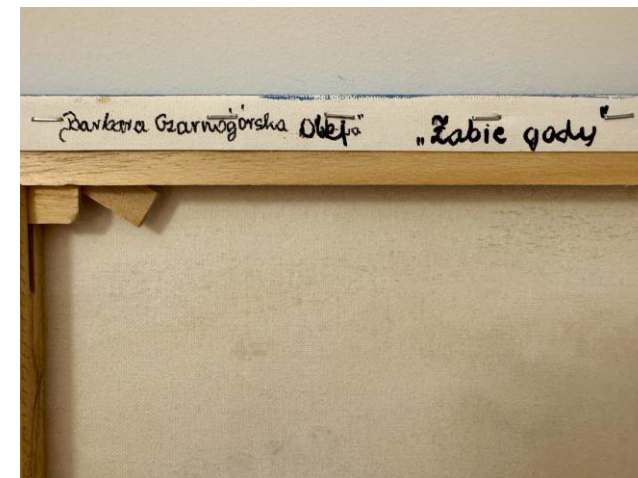 Barbara Czarnogórska Olej „Żabie gody"